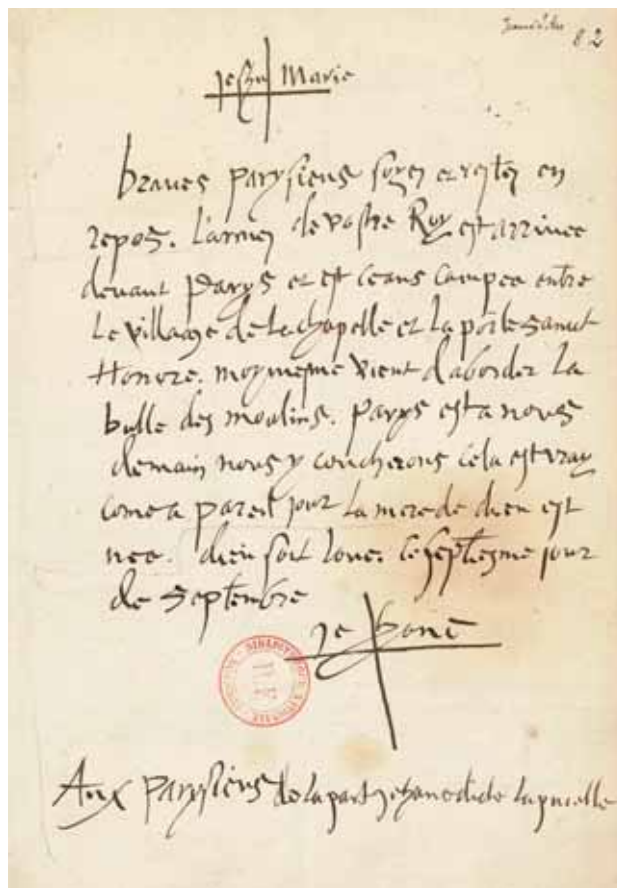 82
Jeshu Marie
braves parysiens soyez et restez en
repos. L'armez de vostre Roy est arrivee
devant Parys et est ceans campee entre
Le village de Lachapelle et La porte sainct
Honore. moymesme vient d'aborder La
butte des moulins. Parys est a nous
demain nous y coucherons cela est vray
come a pareil jour La mere de dieu est
nee. dieu soit loue. ce septiesme jour
de septembre
Jehane
Aux parysiens de la part jehane dicte Lapucelle